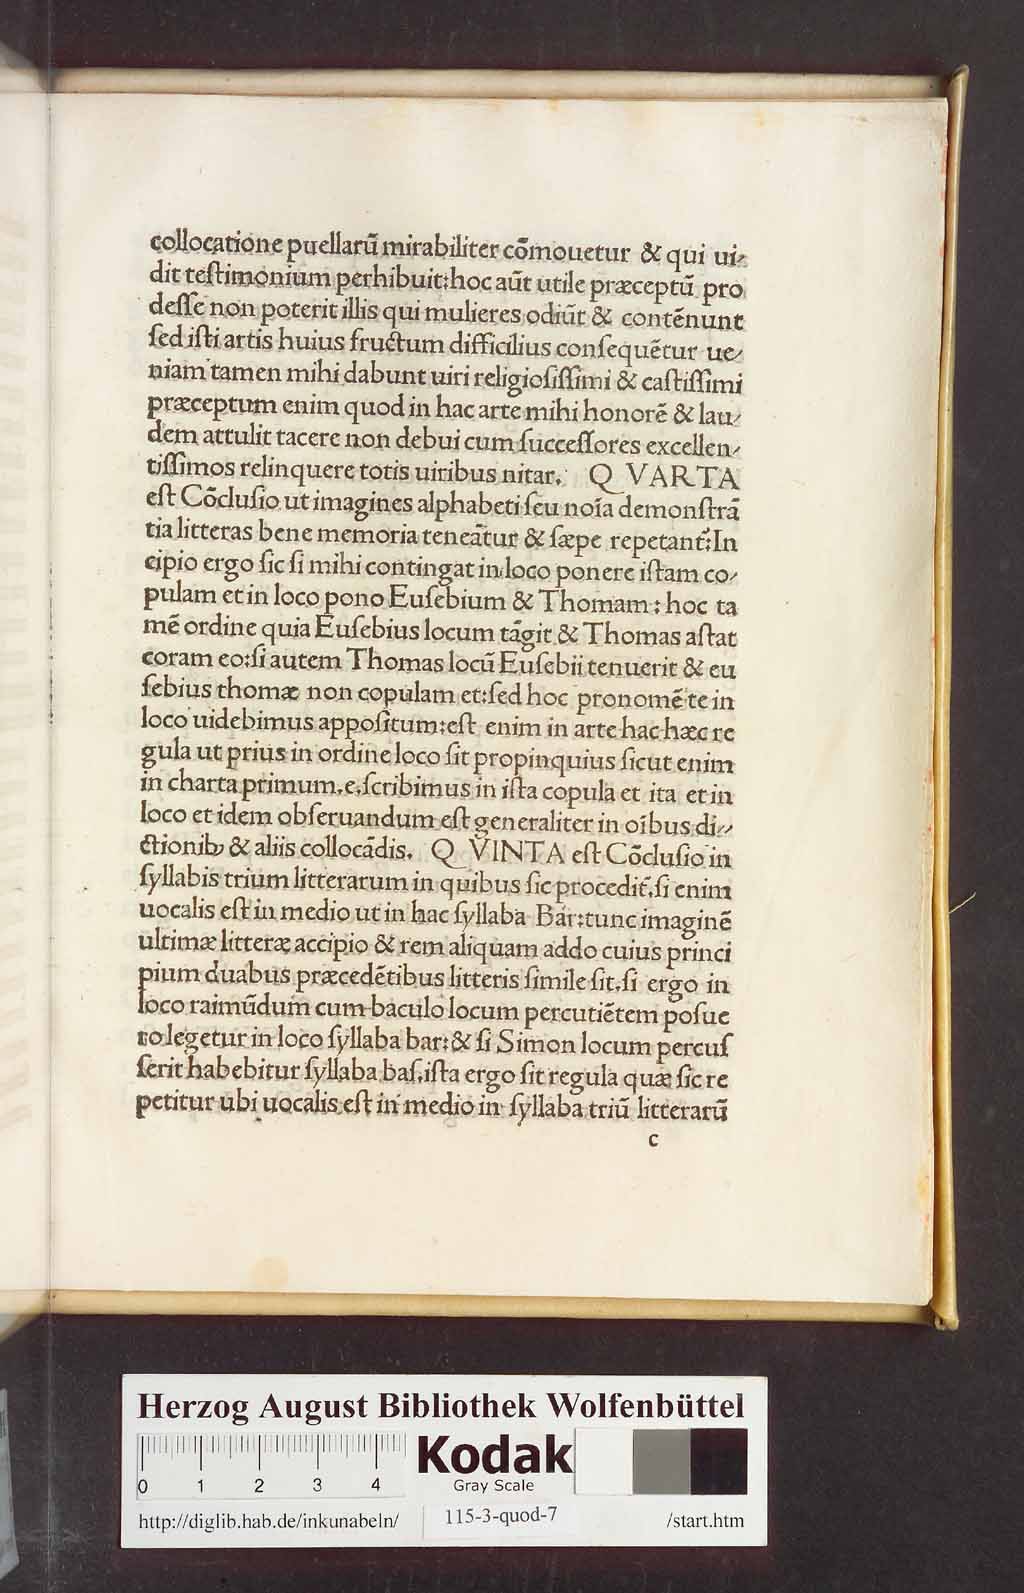 collocatione puellarū mirabiliter cōmouetur & qui ui⸗
dit teſtimonium perhibuit:hoc aūt utile præceptū pro
deſſe non poterit illis qui mulieres odiūt & contēnunt
ſed iſti artis huius fructum difficilius conſequētur ue⸗
niam tamen mihi dabunt uiri religioſiſſimi & caſtiſſimi
præceptum enim quod in hac arte mihi honorē & lau⸗
dem attulit tacere non debui cum ſucceſſores excellen⸗
tiſſimos relinquere totis uiribus nitar. Q VARTA
eſt Cōcluſio ut imagines alphabeti ſeu noīa demonſtrā
tia litteras bene memoria teneātur & ſæpe repetant̄:In
cipio ergo ſic ſi mihi contingat in loco ponere iſtam co⸗
pulam et in loco pono Euſebium & Thomam : hoc ta
mē ordine quia Euſebius locum tāgit & Thomas aſtat
coram eo:ſi autem Thomas locū Euſebii tenuerit & eu
ſebius thomæ non copulam et:ſed hoc pronomē te in
loco uidebimus appoſitum:eſt enim in arte hac hæc re
gula ut prius in ordine loco ſit propinquius ſicut enim
in charta primum.e.ſcribimus in iſta copula et ita et in
loco et idem obſeruandum eſt generaliter in oībus di⸗
ctionibꝫ & aliis collocādis. Q VINTA eſt Cōcluſio in
ſyllabis trium litterarum in quibus ſic procedit̄.ſi enim
uocalis eſt in medio ut in hac ſyllaba Bar:tunc imaginē
ultimæ litteræ accipio & rem aliquam addo cuius princi
pium duabus præcedētibus litteris ſimile ſit.ſi ergo in
loco raimūdum cum baculo locum percutiētem poſue
ro legetur in loco ſyllaba bar:& ſi Simon locum percuſ
ſerit habebitur ſyllaba baſ.iſta ergo ſit regula quæ ſic re
petitur ubi uocalis eſt in medio in ſyllaba triū litterarū
c
Herzog August Bibliothek Wolfenbüttel
0 1 2 3 4
Kodak
Gray Scale
http://diglib.hab.de/inkunabeln/ 115-3-quod-7 /start.htm